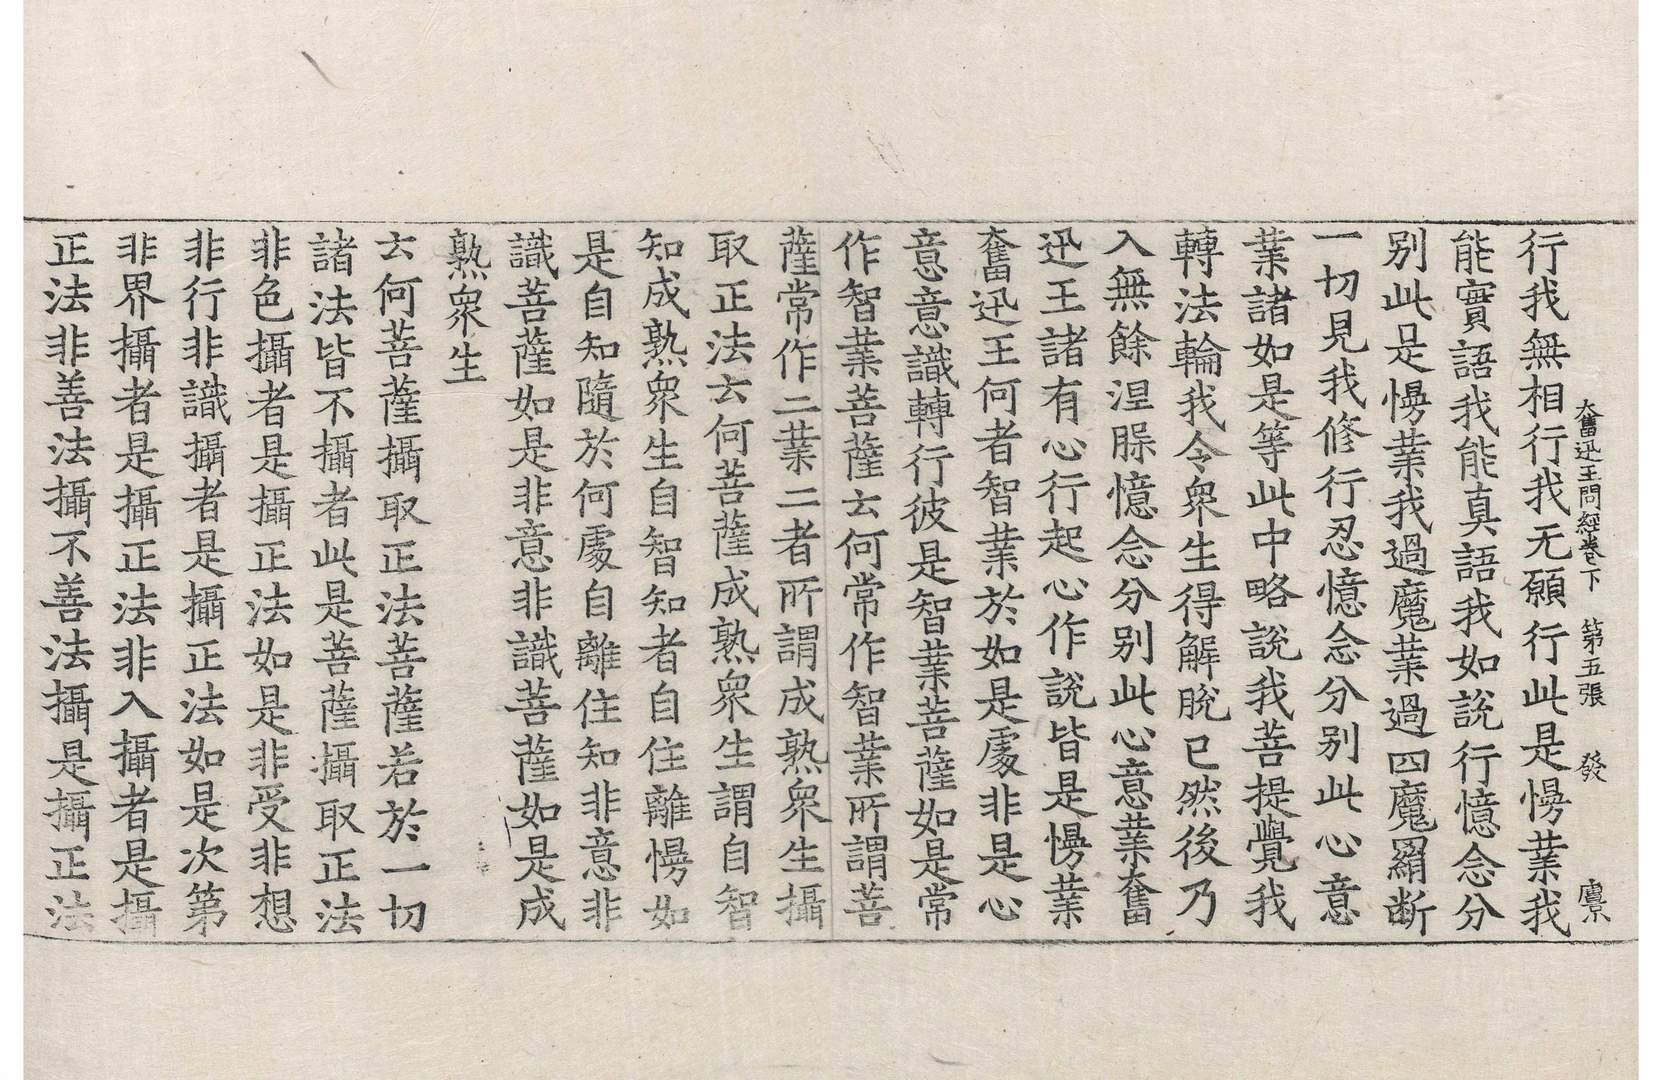 奮迅王問經卷下　第五張　發　
行我無相行我无願行此是慢業我
能實語我能真語我如說行憶念分
别此是慢業我過魔業過四魔羅斷
一切見我修行忍憶念分别此心意
業諸如是等此中略說我菩提覺我
轉法輪我令衆生得解脫已然後乃
入無餘涅槃憶念分别此心意業奮
迅王諸有心行起心作說皆是慢業
奮迅王何者智業於如是處非是心
意意識轉行彼是智業菩薩如是常
作智業菩薩云何常作智業所謂菩
薩常作二業二者所謂成熟衆生攝
取正法云何菩薩成熟衆生謂自智
知成熟衆生自智知者自住離慢如
是自知隨於何處自離住知非意非
識菩薩如是非意非識菩薩如是成
熟衆生
云何菩薩攝取正法菩薩若於一切
諸法皆不攝者此是菩薩攝取正法
非色攝者是攝正法如是非受非想
非行非識攝者是攝正法如是次第
非界攝者是攝正法非入攝者是攝
正法非善法攝不善法攝是攝正法